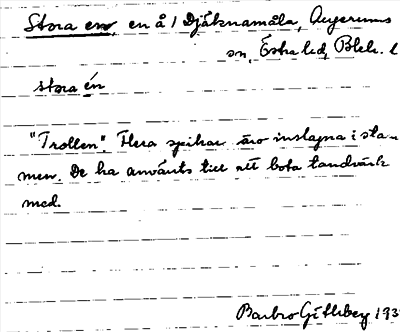 Stora en, en å i Djäknamåla, Augerums
sn, Östra hd, Blek. l
stora én
"Trollen". Flera spikar äro inslagna i sta-
men. De ha använts till att bota tandvärk
med.
Barbro Götheberg 193